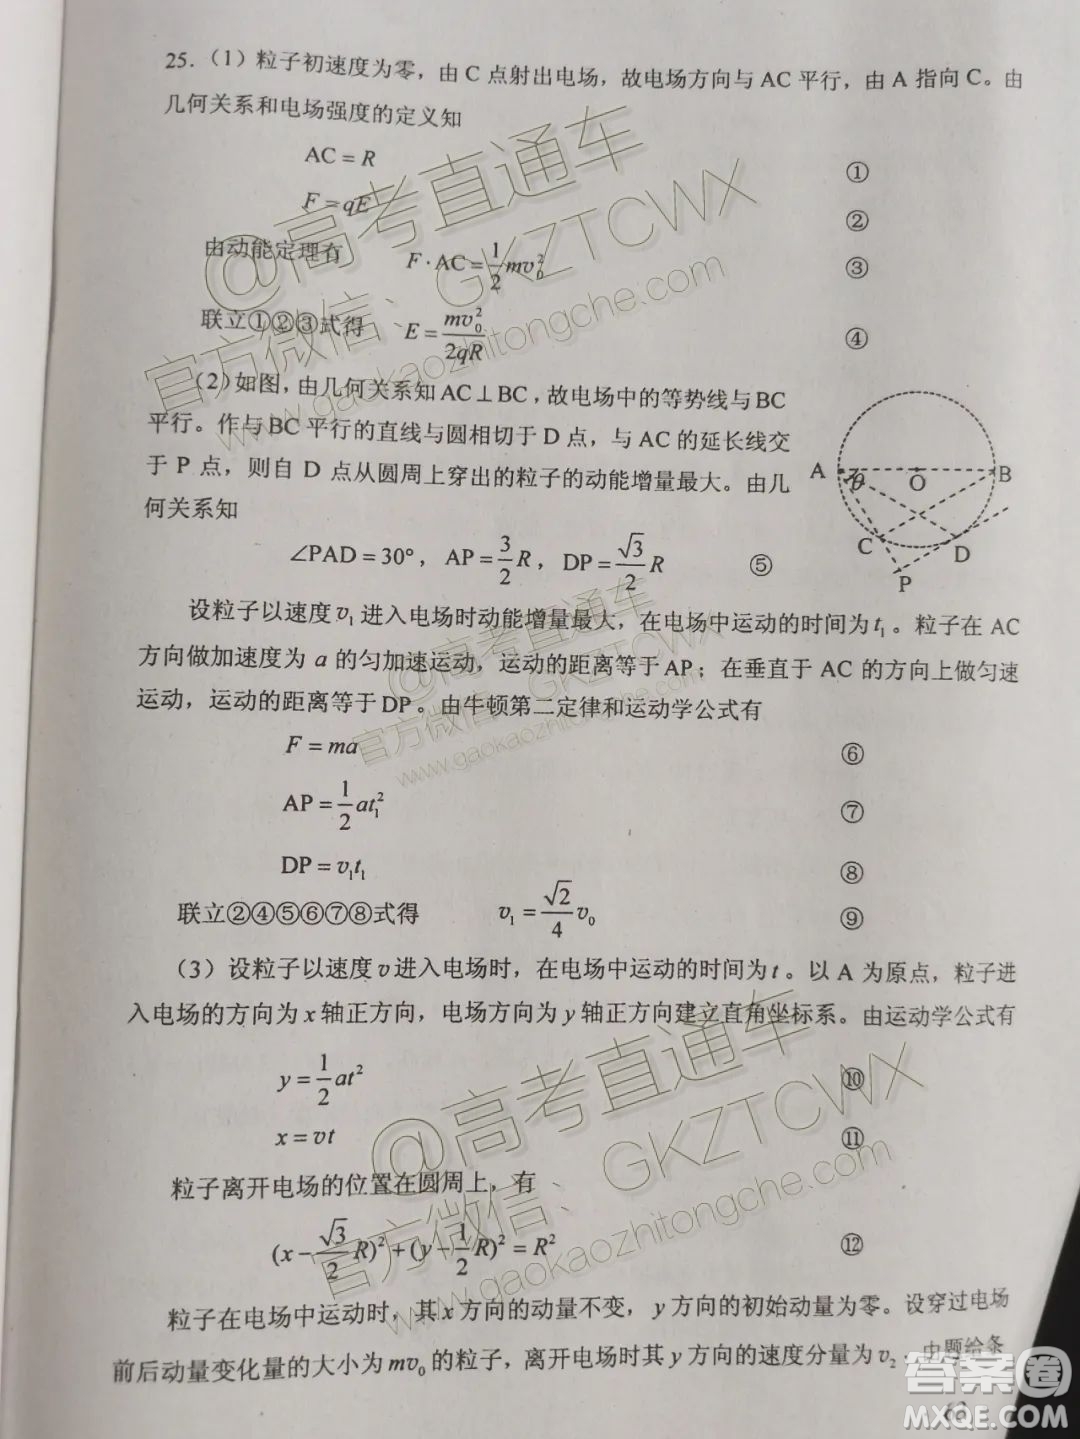 25.（1）粒子初速度为零，由 C 点射出电场，故电场方向与 AC 平行，由 A 指向 C。由
几何关系和电场强度的定义知
AC = R ①
F = qE ②
由动能定理有 F·AC = 1/2 mv₀² ③
联立①②③式得 E = mv₀²/2qR ④
（2）如图，由几何关系知 AC⊥BC，故电场中的等势线与 BC
平行。作与 BC 平行的直线与圆相切于 D 点，与 AC 的延长线交
于 P 点，则自 D 点从圆周上穿出的粒子的动能增量最大。由几
何关系知
∠PAD = 30°，AP = 3/2 R，DP = √3/2 R ⑤
A θ O B
C D
P
设粒子以速度 v₁ 进入电场时动能增量最大，在电场中运动的时间为 t₁。粒子在 AC
方向做加速度为 a 的匀加速运动，运动的距离等于 AP；在垂直于 AC 的方向上做匀速
运动，运动的距离等于 DP。由牛顿第二定律和运动学公式有
F = ma ⑥
AP = 1/2 at₁² ⑦
DP = v₁t₁ ⑧
联立②④⑤⑥⑦⑧式得 v₁ = √2/4 v₀ ⑨
（3）设粒子以速度 v 进入电场时，在电场中运动的时间为 t。以 A 为原点，粒子进
入电场的方向为 x 轴正方向，电场方向为 y 轴正方向建立直角坐标系。由运动学公式有
y = 1/2 at² ⑩
x = vt ⑪
粒子离开电场的位置在圆周上，有
(x − √3/2 R)² + (y − 1/2 R)² = R² ⑫
粒子在电场中运动时，其 x 方向的动量不变，y 方向的初始动量为零。设穿过电场
前后动量变化量的大小为 mv₀ 的粒子，离开电场时其 y 方向的速度分量为 v₂，由题给条
@高考直通车
官方微信：GKZTCWX
www.gaokaozhitongche.com
@高考直通车
官方微信：GKZTCWX
www.gaokaozhitongche.com
@高考直通车
官方微信：GKZTCWX
www.gaokaozhitongche.com
答案卷
MXQE.COM